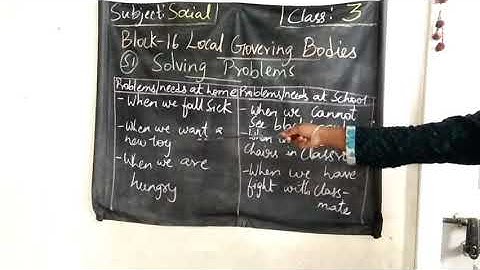 Subject: Social
Class: 3
Block-16 Local Govering Bodies
51 Solving Problems
Problems/needs at home
- When we fall sick
- When we want a
new toy
- When we are
hungry
Problems/needs at School
- When we cannot
See
chairs in
- When we have
fight with class-
mate